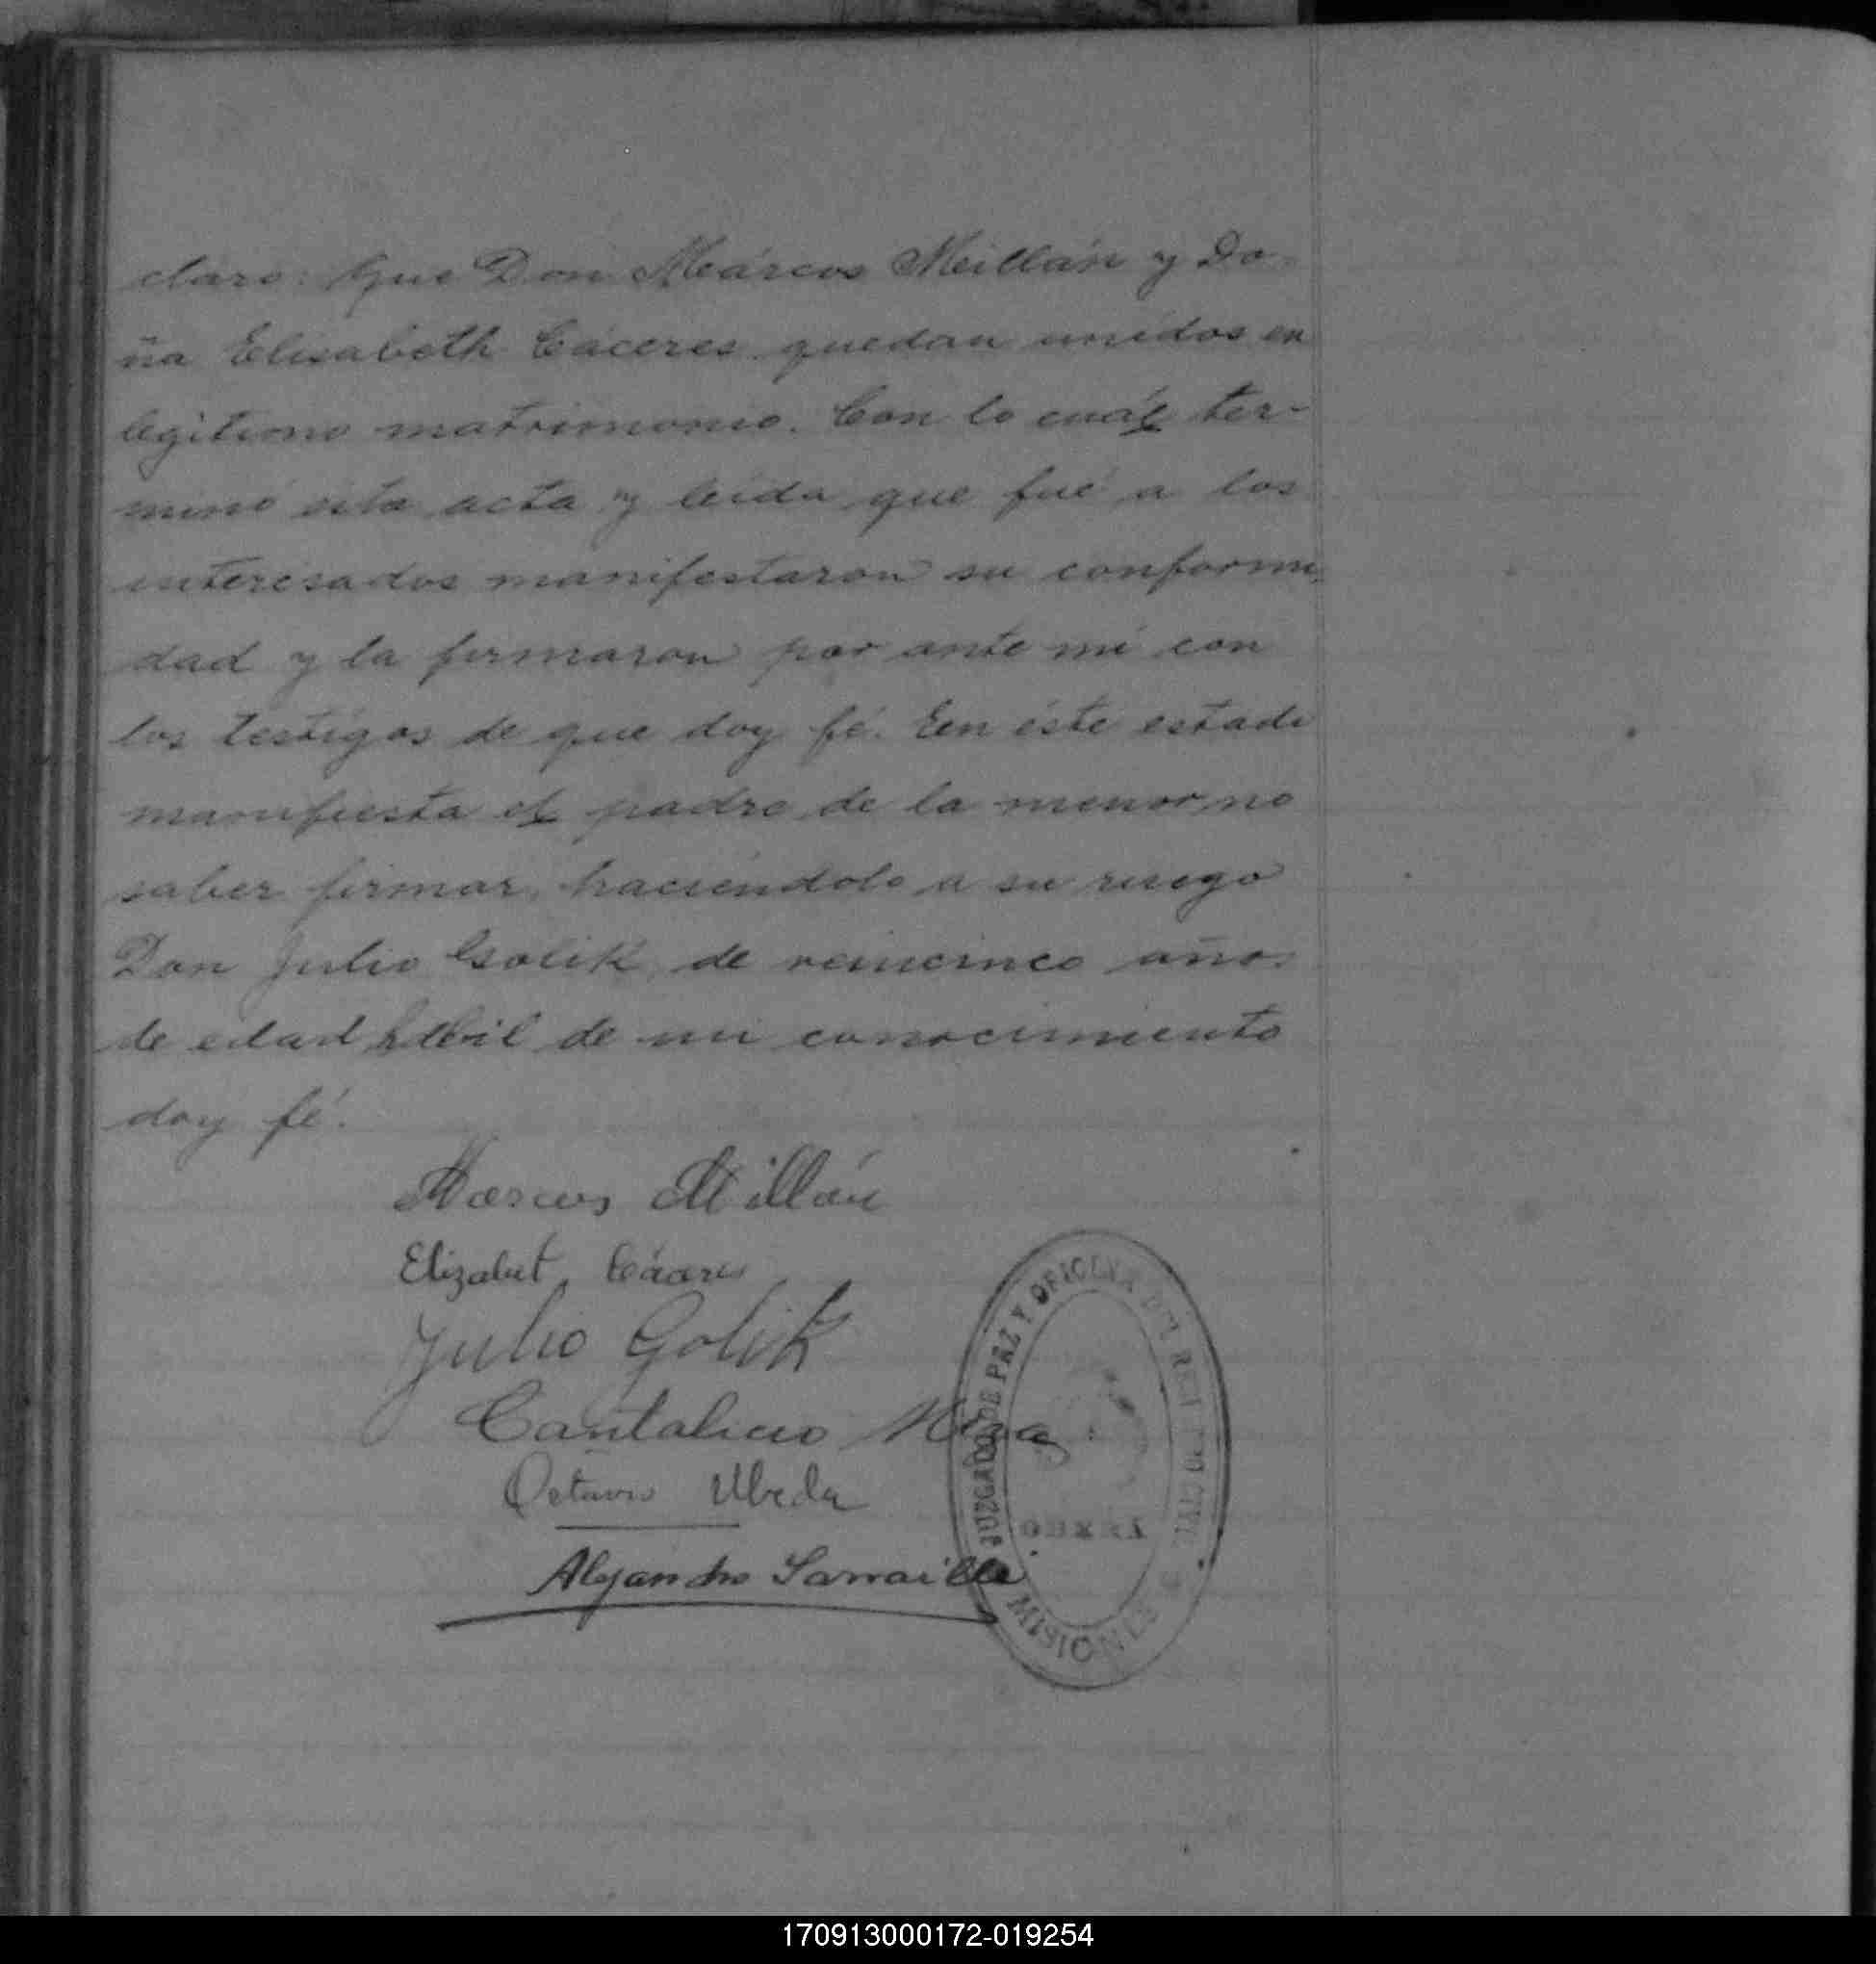 claro: Que Don Márcos Meillán y Do-
ña Elisabeth Cáceres quedan unidos en
legitimo matrimonio. Con lo cuál ter-
minó esta acta y leida que fué a los
interesados manifestaron su conformi-
dad y la firmaron por ante mi con
los testigos de que doy fé. En éste estado
manifiesta el padre de la menor no
saber firmar, haciéndolo a su ruego
Don Julio Golik, de veincinco años
de edad hábil de mi conocimiento
doy fé.
Marcos Millán
Elizabet Cáceres
Julio Golik
Cantalicio
Octavio Ubeda
Alejandro
JUZGADO DE PAZ Y OFICINA DEL REGISTRO CIVIL
OBERÁ
MISIONES
170913000172-019254